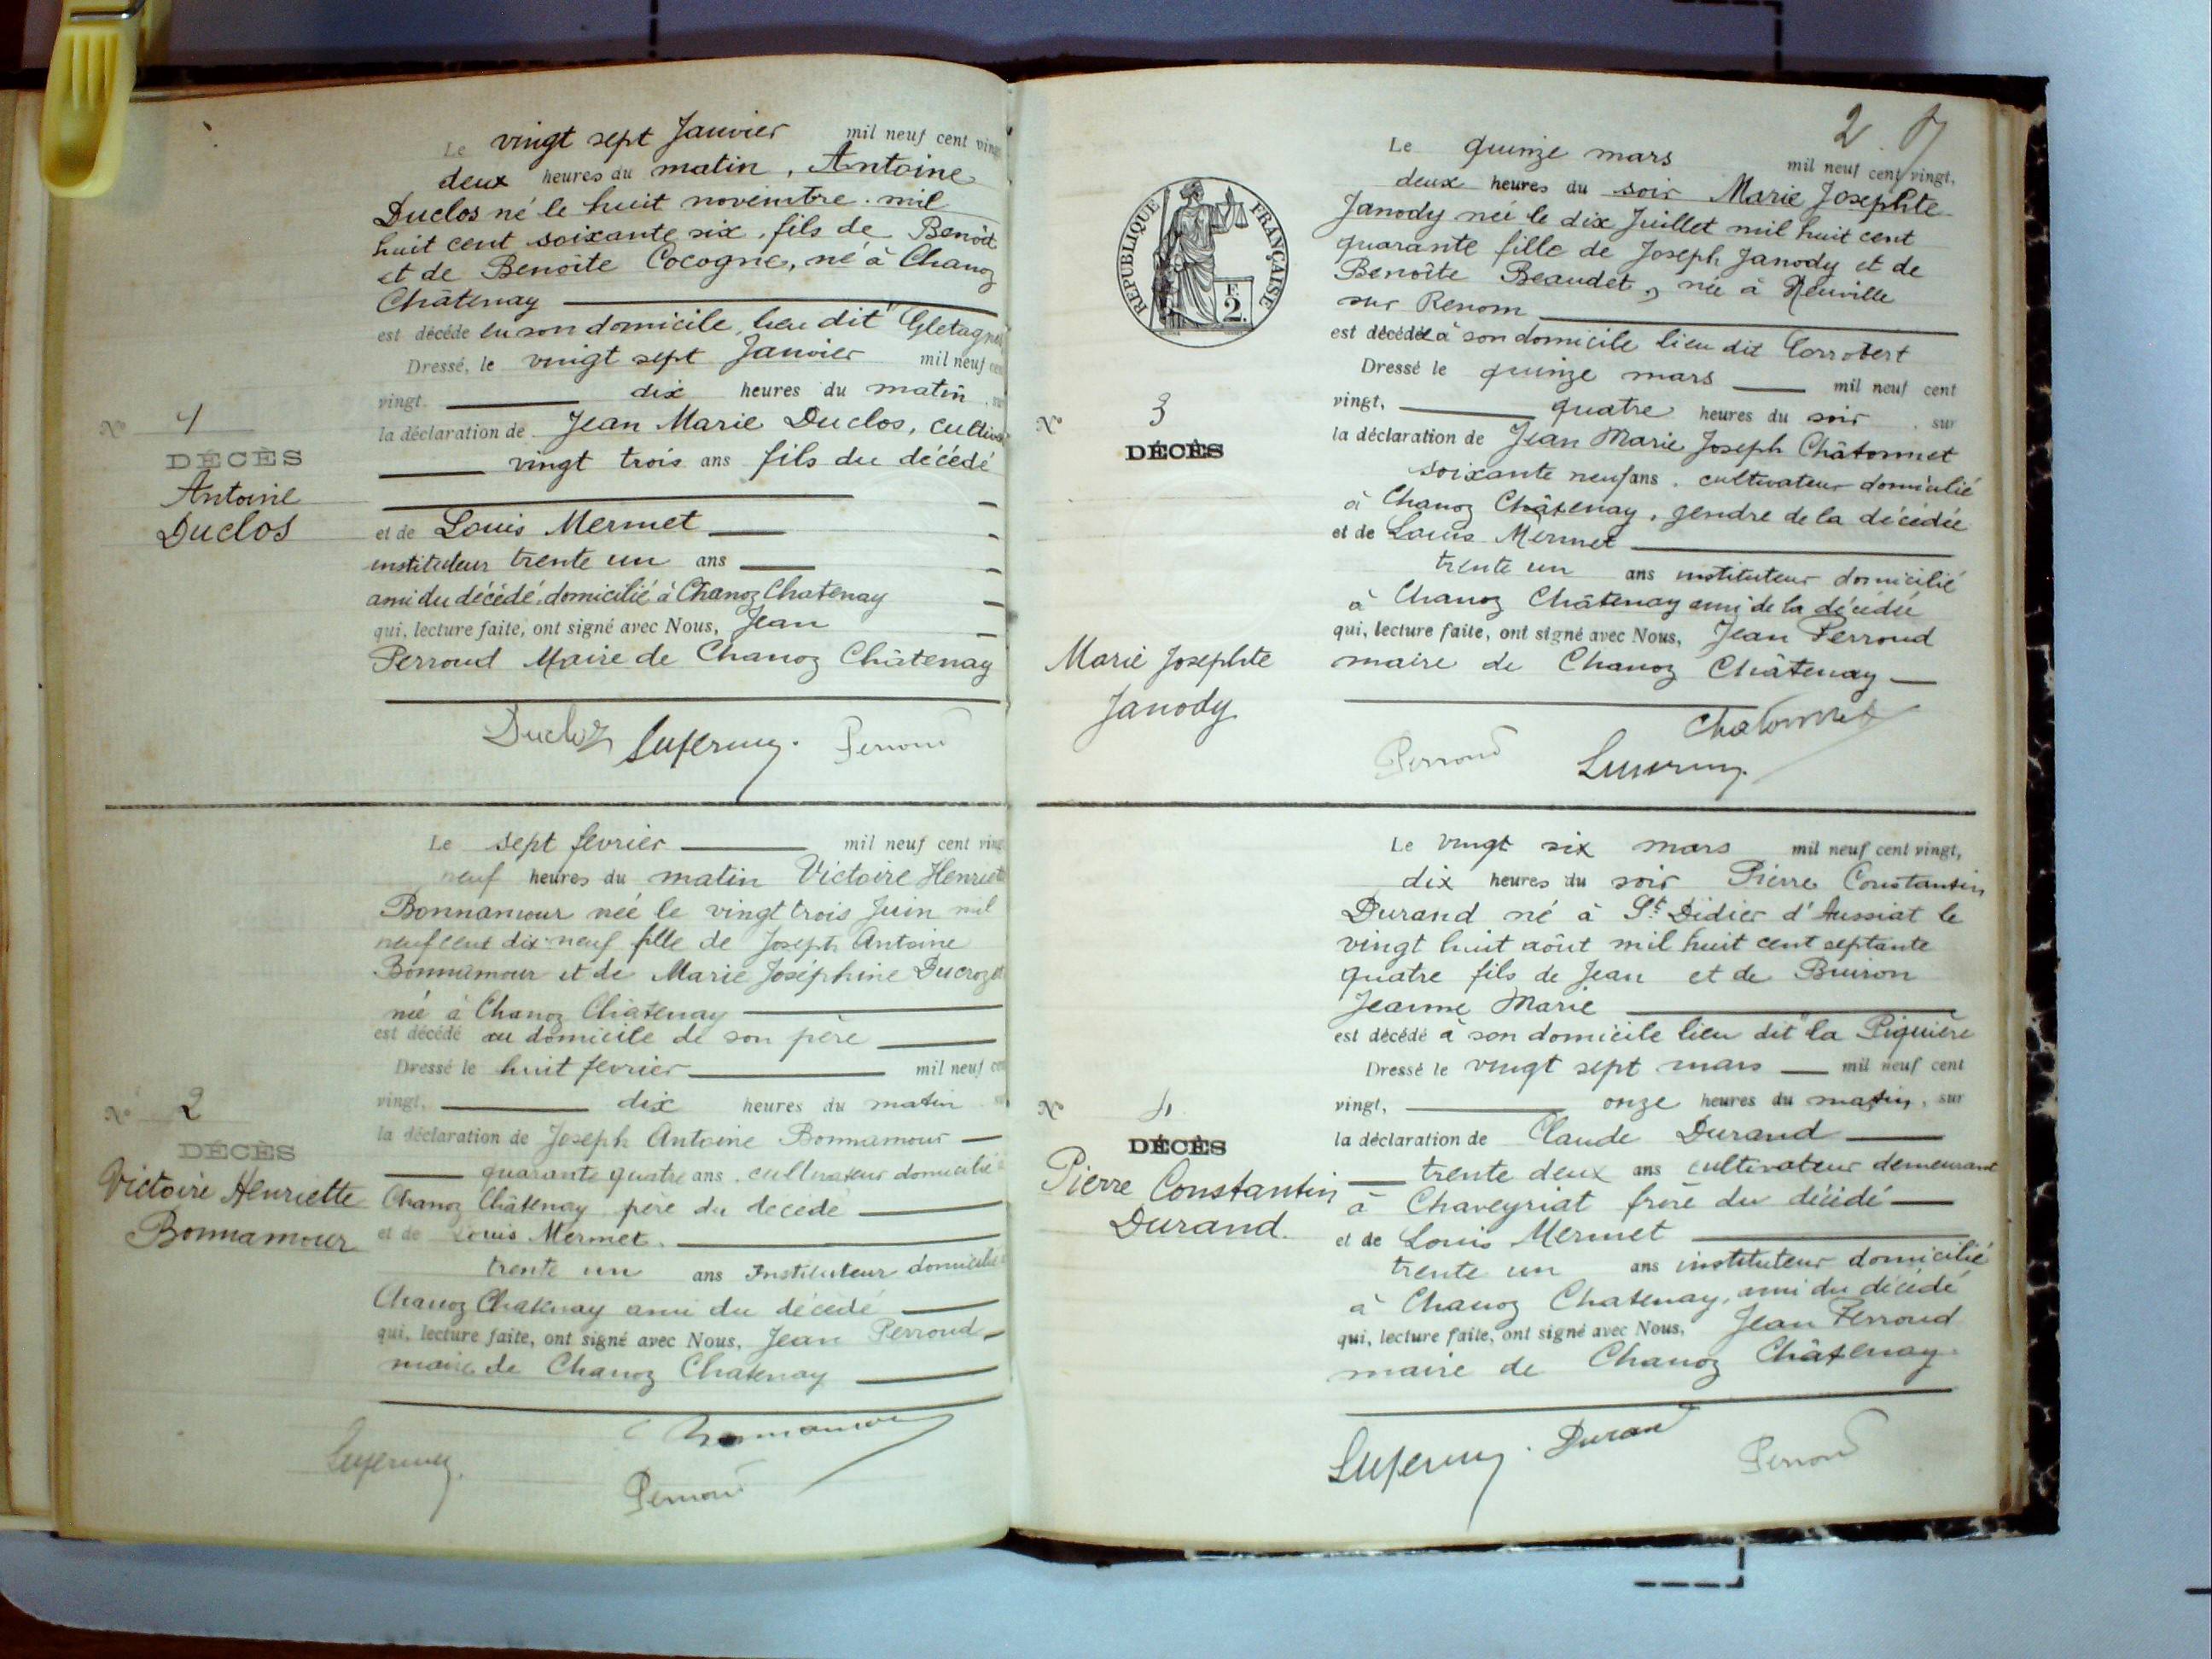 Le vingt sept Janvier mil neuf cent vingt
deux heures du matin, Antoine
Duclos né le huit novembre mil
huit cent soixante six, fils de Benoît
et de Benoîte Cocogne, né à Chanoz
Châtenay
est décédé en son domicile, lieu dit
Dressé, le vingt sept Janvier mil neuf cent
vingt. dix heures du matin
la déclaration de Jean Marie Duclos,
vingt trois ans fils du décédé
et de Louis Mermet
instituteur trente un ans
ami du décédé, domicilié à Chanoz Chatenay
qui, lecture faite, ont signé avec Nous, Jean
Perroud Maire de Chanoz Châtenay
No 1
DÉCÈS
Antoine
Duclos
Perroud
Le sept fevrier mil neuf cent vingt
neuf heures du matin Victoire Henriette
Bonnamour née le vingt trois Juin mil
neuf cent dix neuf fille de Joseph Antoine
Bonnamour et de Marie Joséphine Ducrozet
né à Chanoz Châtenay
est décédé au domicile de son père
Dressé le huit fevrier mil neuf cent
vingt, dix heures du matin
la déclaration de Joseph Antoine Bonnamour
quarante quatre ans, cultivateur domicilié à
Chanoz Châtenay père du décédé
et de Louis Mermet.
trente un ans Instituteur domicilié à
Chanoz Chatenay ami du décédé
qui, lecture faite, ont signé avec Nous, Jean Perroud
maire de Chanoz Chatenay
No 2
DÉCÈS
Victoire Henriette
Bonnamour
Bonnamour
Perroud
2
Le quinze mars mil neuf cent vingt,
deux heures du soir Marie Josephte
Janody née le dix Juillet mil huit cent
quarante fille de Joseph Janody et de
Benoîte Beaudet, née à Neuville
sur Renom
est décédée à son domicile lieu dit Corrobert
Dressé le quinze mars mil neuf cent
vingt, quatre heures du soir, sur
la déclaration de Jean Marie Joseph Châtonnet
soixante neuf ans, cultivateur domicilié
à Chanoz Châtenay, gendre de la décédée
et de Louis Mermet
trente un ans instituteur domicilié
à Chanoz Châtenay ami de la décédée
qui, lecture faite, ont signé avec Nous, Jean Perroud
maire de Chanoz Châtenay
REPUBLIQUE FRANÇAISE
F.
2.
No 3
DÉCÈS
Marie Josephte
Janody
Chatonnet
Perroud
Le vingt six mars mil neuf cent vingt,
dix heures du soir Pierre Constantin
Durand né à St Didier d'Aussiat le
vingt huit août mil huit cent septante
quatre fils de Jean et de Buiron
Jeanne Marie
est décédé à son domicile lieu dit "la Piquière
Dressé le vingt sept mars mil neuf cent
vingt, onze heures du matin, sur
la déclaration de Claude Durand
trente deux ans cultivateur demeurant
à Chaveyriat frère du décédé
et de Louis Mermet
trente un ans instituteur domicilié
à Chanoz Chatenay, ami du décédé
qui, lecture faite, ont signé avec Nous, Jean Perroud
maire de Chanoz Châtenay
No 4
DÉCÈS
Pierre Constantin
Durand.
Durand
Perroud